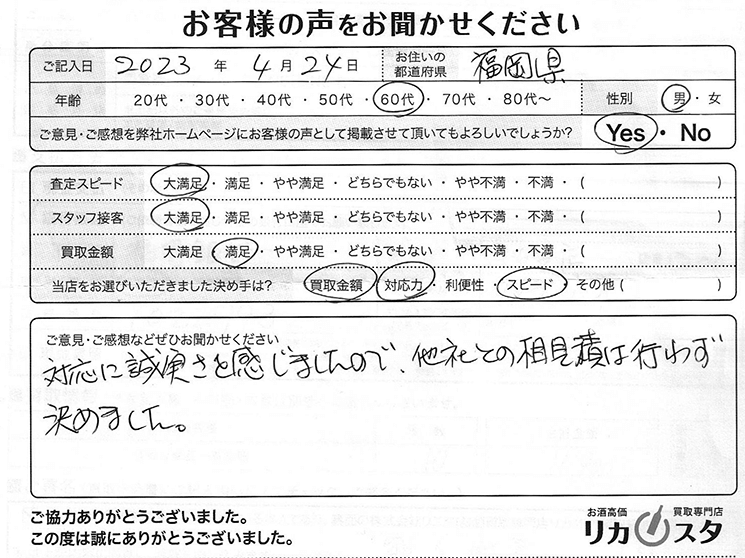 お客様の声をお聞かせください
ご記入日 2023 年 4 月 24 日 お住いの都道府県 福岡県
年齢 20代 ・ 30代 ・ 40代 ・ 50代 ・ 60代 ・ 70代 ・ 80代～ 性別 男 ・ 女
ご意見・ご感想を弊社ホームページにお客様の声として掲載させて頂いてもよろしいでしょうか? Yes ・ No
査定スピード 大満足 ・ 満足 ・ やや満足 ・ どちらでもない ・ やや不満 ・ 不満 ・ ( )
スタッフ接客 大満足 ・ 満足 ・ やや満足 ・ どちらでもない ・ やや不満 ・ 不満 ・ ( )
買取金額 大満足 ・ 満足 ・ やや満足 ・ どちらでもない ・ やや不満 ・ 不満 ・ ( )
当店をお選びいただきました決め手は? 買取金額 ・ 対応力 ・ 利便性 ・ スピード ・ その他 ( )
ご意見・ご感想などぜひお聞かせください
対応に誠実さを感じましたので、他社との相見積は行わず
決めました。
ご協力ありがとうございました。
この度は誠にありがとうございました。
お酒高価 買取専門店
リカスタ